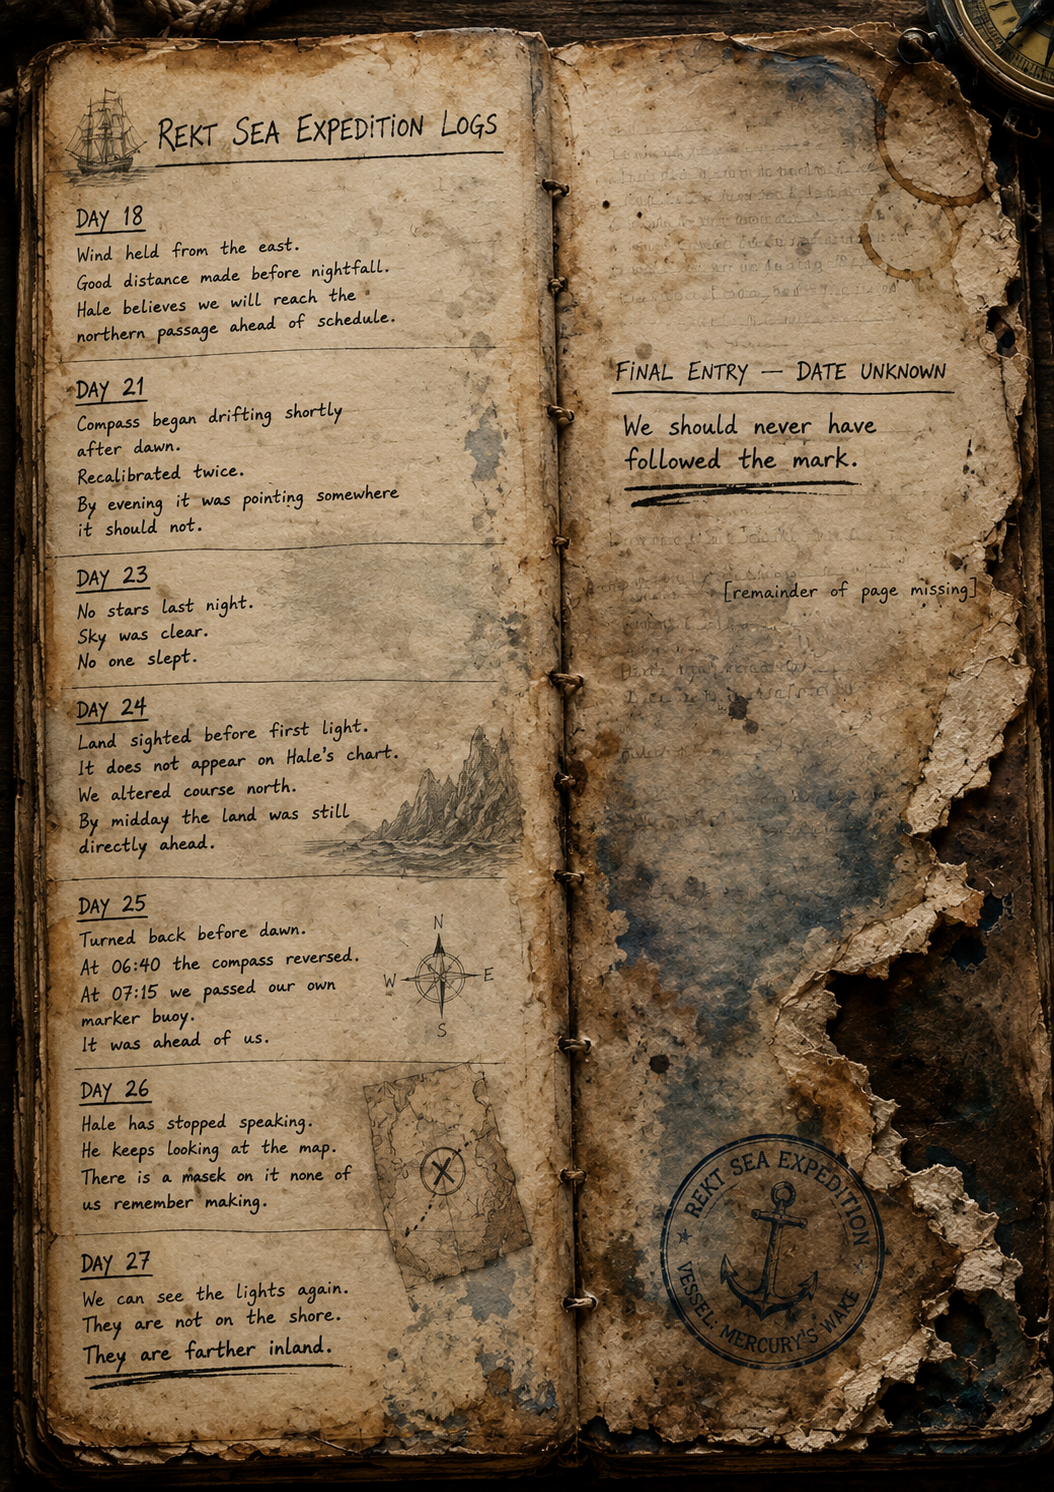 REKT SEA EXPEDITION LOGS
DAY 18
Wind held from the east.
Good distance made before nightfall.
Hale believes we will reach the
northern passage ahead of schedule.
DAY 21
Compass began drifting shortly
after dawn.
Recalibrated twice.
By evening it was pointing somewhere
it should not.
DAY 23
No stars last night.
Sky was clear.
No one slept.
DAY 24
Land sighted before first light.
It does not appear on Hale's chart.
We altered course north.
By midday the land was still
directly ahead.
DAY 25
Turned back before dawn.
At 06:40 the compass reversed.
At 07:15 we passed our own
marker buoy.
It was ahead of us.
N
W E
S
DAY 26
Hale has stopped speaking.
He keeps looking at the map.
There is a masek on it none of
us remember making.
X
DAY 27
We can see the lights again.
They are not on the shore.
They are farther inland.
FINAL ENTRY — DATE UNKNOWN
We should never have
followed the mark.
[remainder of page missing]
REKT SEA EXPEDITION
VESSEL: MERCURY'S WAKE